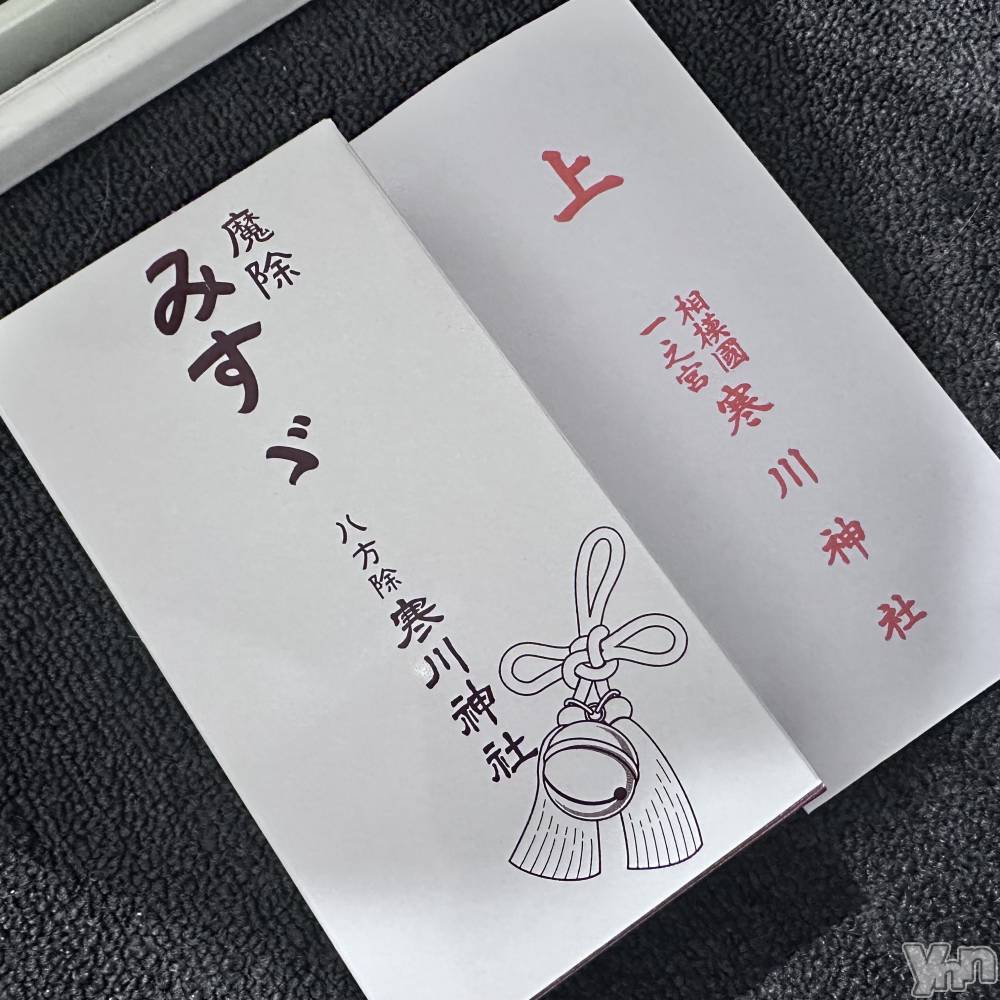 魔除
みすゞ
八方除
寒川神社
上
相模國
一之宮
寒川神社